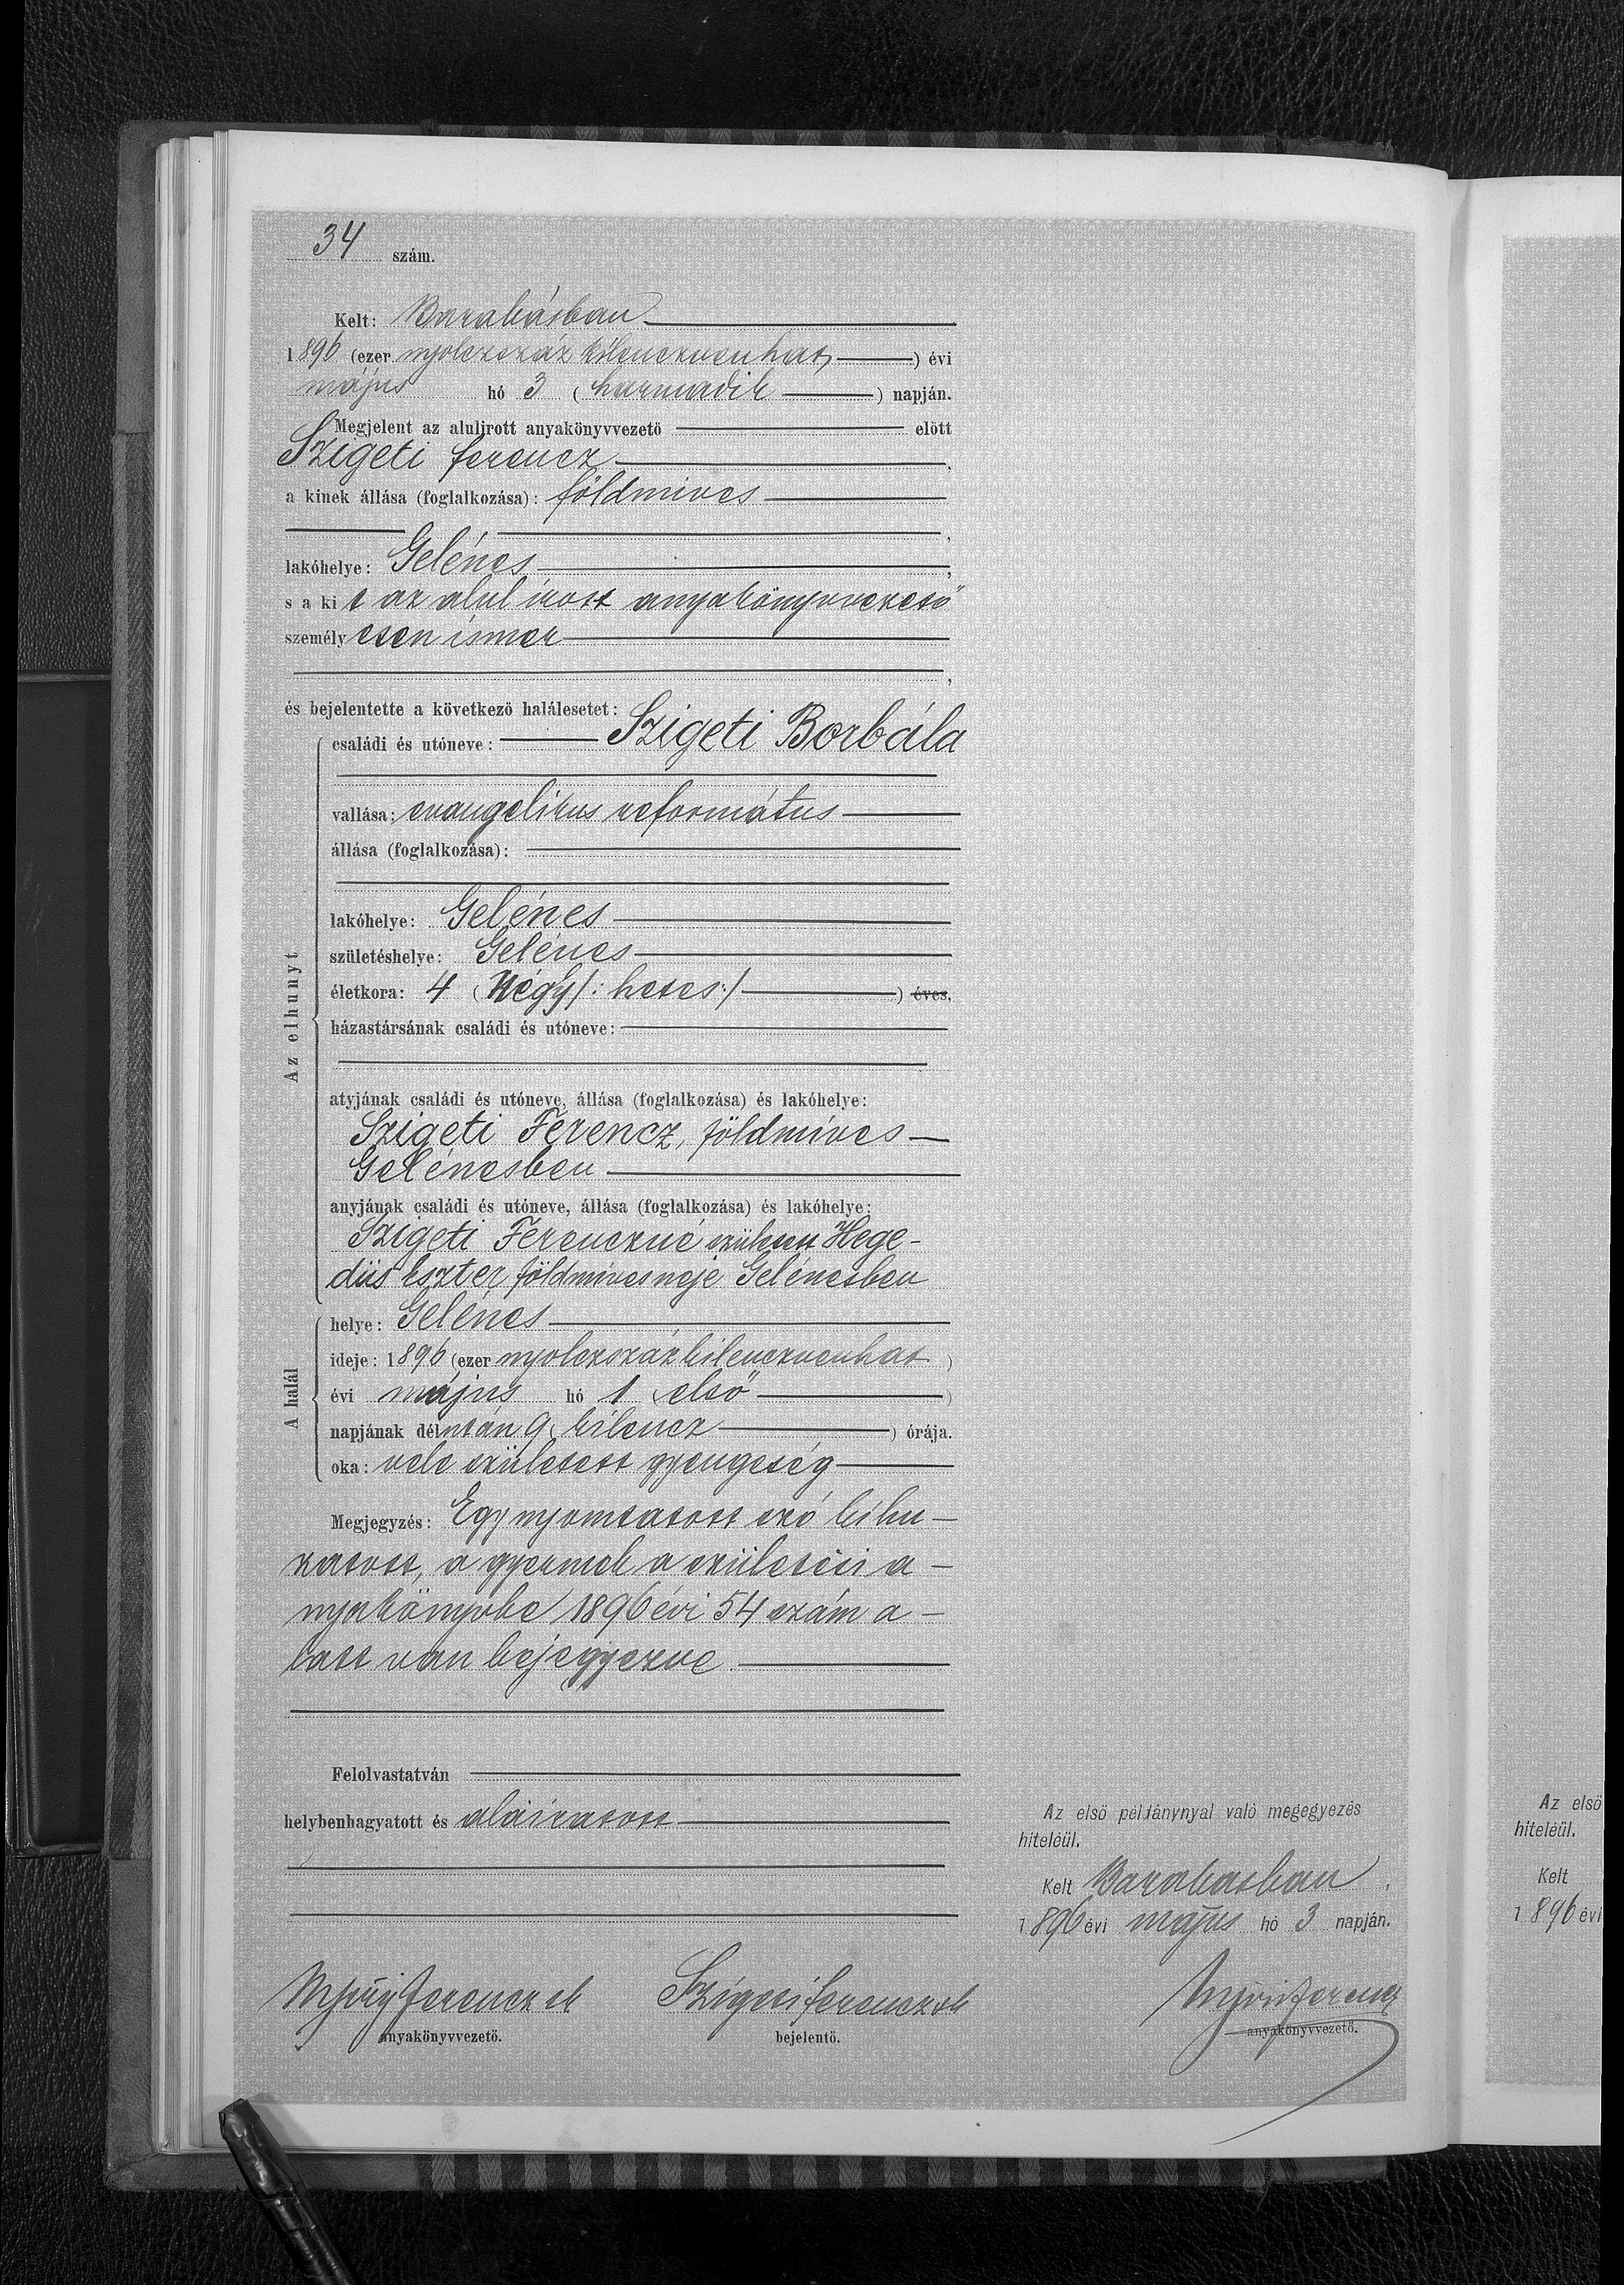 34 szám.
Kelt: Barabásban
1896 (ezer nyolczszáz kilenczvenhat) évi
május hó 3 (harmadik) napján.
Megjelent az alulirott anyakönyvvezető előtt
Szigeti Ferencz,
a kinek állása (foglalkozása): földmives
,
lakóhelye: Gelénes,
s a kit az alul irott anyakönyvvezető
személyesen ismer
,
és bejelentette a következő halálesetet:
Az elhunyt
családi és utóneve: Szigeti Borbála
vallása: evangelikus református
állása (foglalkozása):
lakóhelye: Gelénes
születéshelye: Gelénes
életkora: 4 (Négy /: hetes :/) éves.
házastársának családi és utóneve:
atyjának családi és utóneve, állása (foglalkozása) és lakóhelye:
Szigeti Ferencz, földmíves
Gelénesben
anyjának családi és utóneve, állása (foglalkozása) és lakóhelye:
Szigeti Ferenczné szület Hege-
düs Eszter földmives neje Gelénesben
A halál
helye: Gelénes
ideje: 1896 (ezer nyolczszáz kilenczvenhat)
évi május hó 1 (első)
napjának délután 9 (kilencz) órája.
oka: vele született gyengeség
Megjegyzés: Egy nyomtatott szó kihu-
zatott, a gyermek a születési a-
nyakönyvbe 1896 évi 54 szám a-
latt van bejegyezve.
Felolvastatván
helybenhagyatott és aláiratott
Ferencz sk
anyakönyvvezető.
Szigeti Ferencz sk
bejelentő.
Az első példánynyal való megegyezés
hiteléül.
Kelt Barabasban,
1896 évi május hó 3 napján.
Ferencz
anyakönyvvezető.
Az első
hiteléül.
Kelt
1896 évi